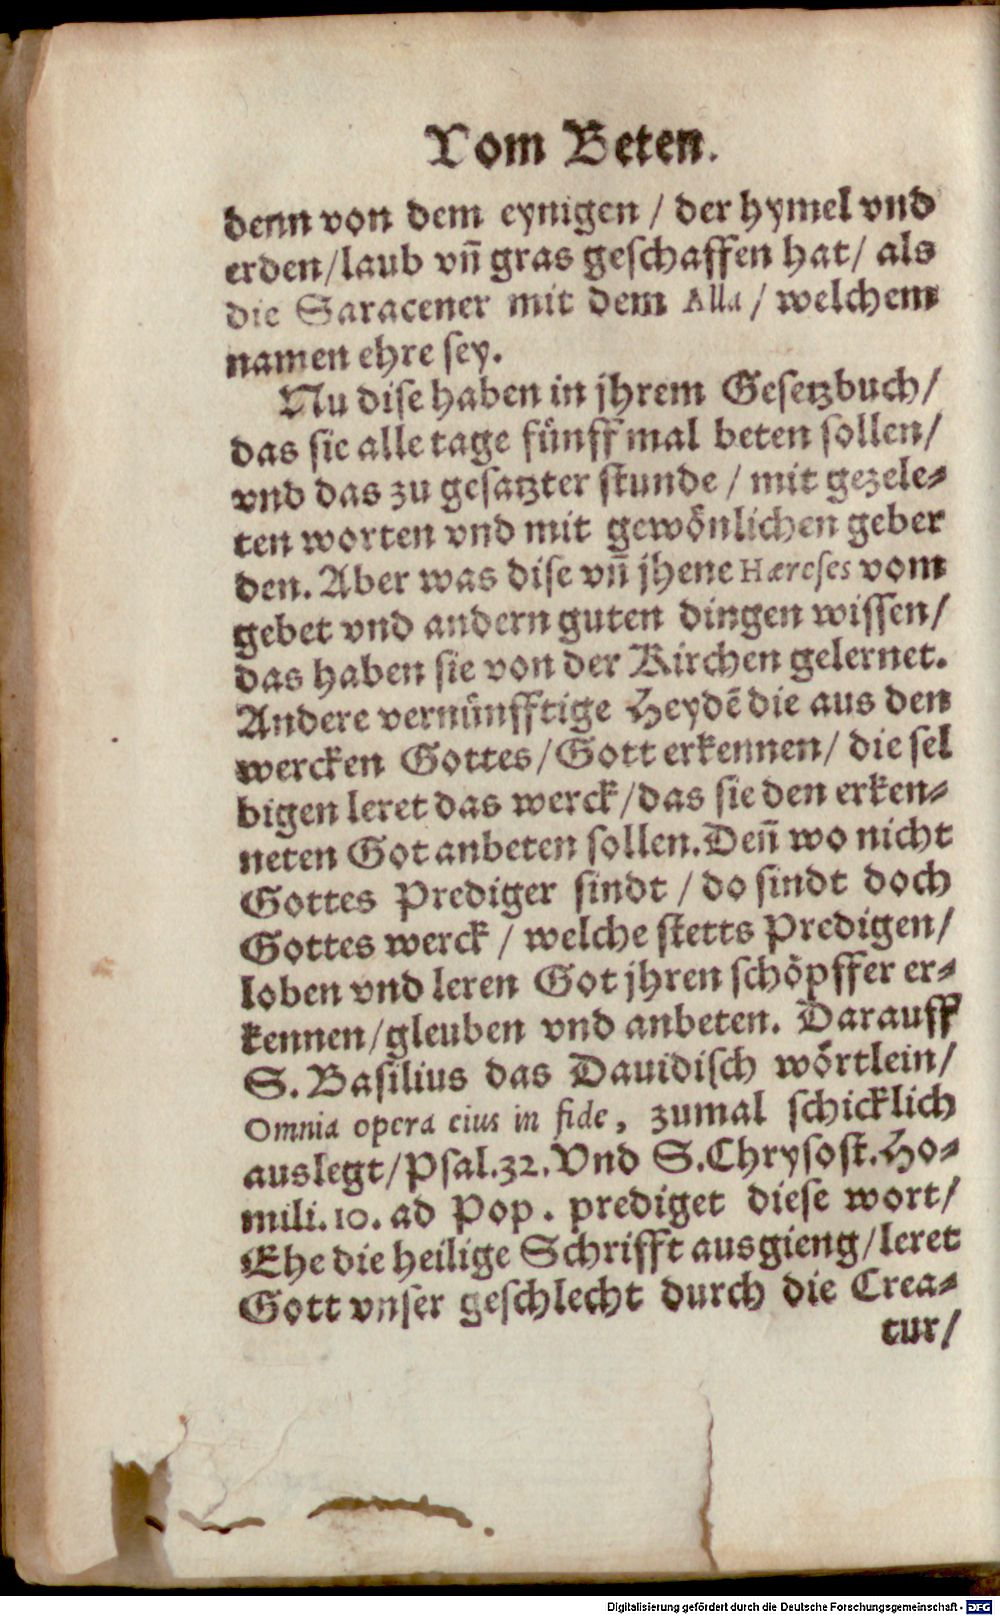 Vom Beten.
denn von dem eynigen / der hymel vnd
erden/laub vñ gras geschaffen hat/ als
die Saracener mit dem Alla / welchem
namen ehre sey.
Nu dise haben in jhrem Gesetzbuch/
das sie alle tage fünff mal beten sollen/
vnd das zu gesatzter stunde / mit gezele-
ten worten vnd mit gewönlichen geber
den. Aber was dise vñ jhene Hæreses vom
gebet vnd andern guten dingen wissen/
das haben sie von der Kirchen gelernet.
Andere vernünfftige Heydē die aus den
wercken Gottes/Gott erkennen/ die sel
bigen leret das werck/das sie den erken-
neten Got anbeten sollen. Deñ wo nicht
Gottes Prediger sindt / do sindt doch
Gottes werck / welche stetts Predigen/
loben vnd leren Got jhren schöpffer er-
kennen/gleuben vnd anbeten. Darauff
S. Basilius das Dauidisch wörtlein/
Omnia opera eius in fide, zumal schicklich
auslegt/Psal.32. Vnd S. Chrysost. Ho-
mili. 10. ad Pop. prediget diese wort/
Ehe die heilige Schrifft ausgieng/leret
Gott vnser geschlecht durch die Crea-
tur/
Digitalisierung gefördert durch die Deutsche Forschungsgemeinschaft - DFG